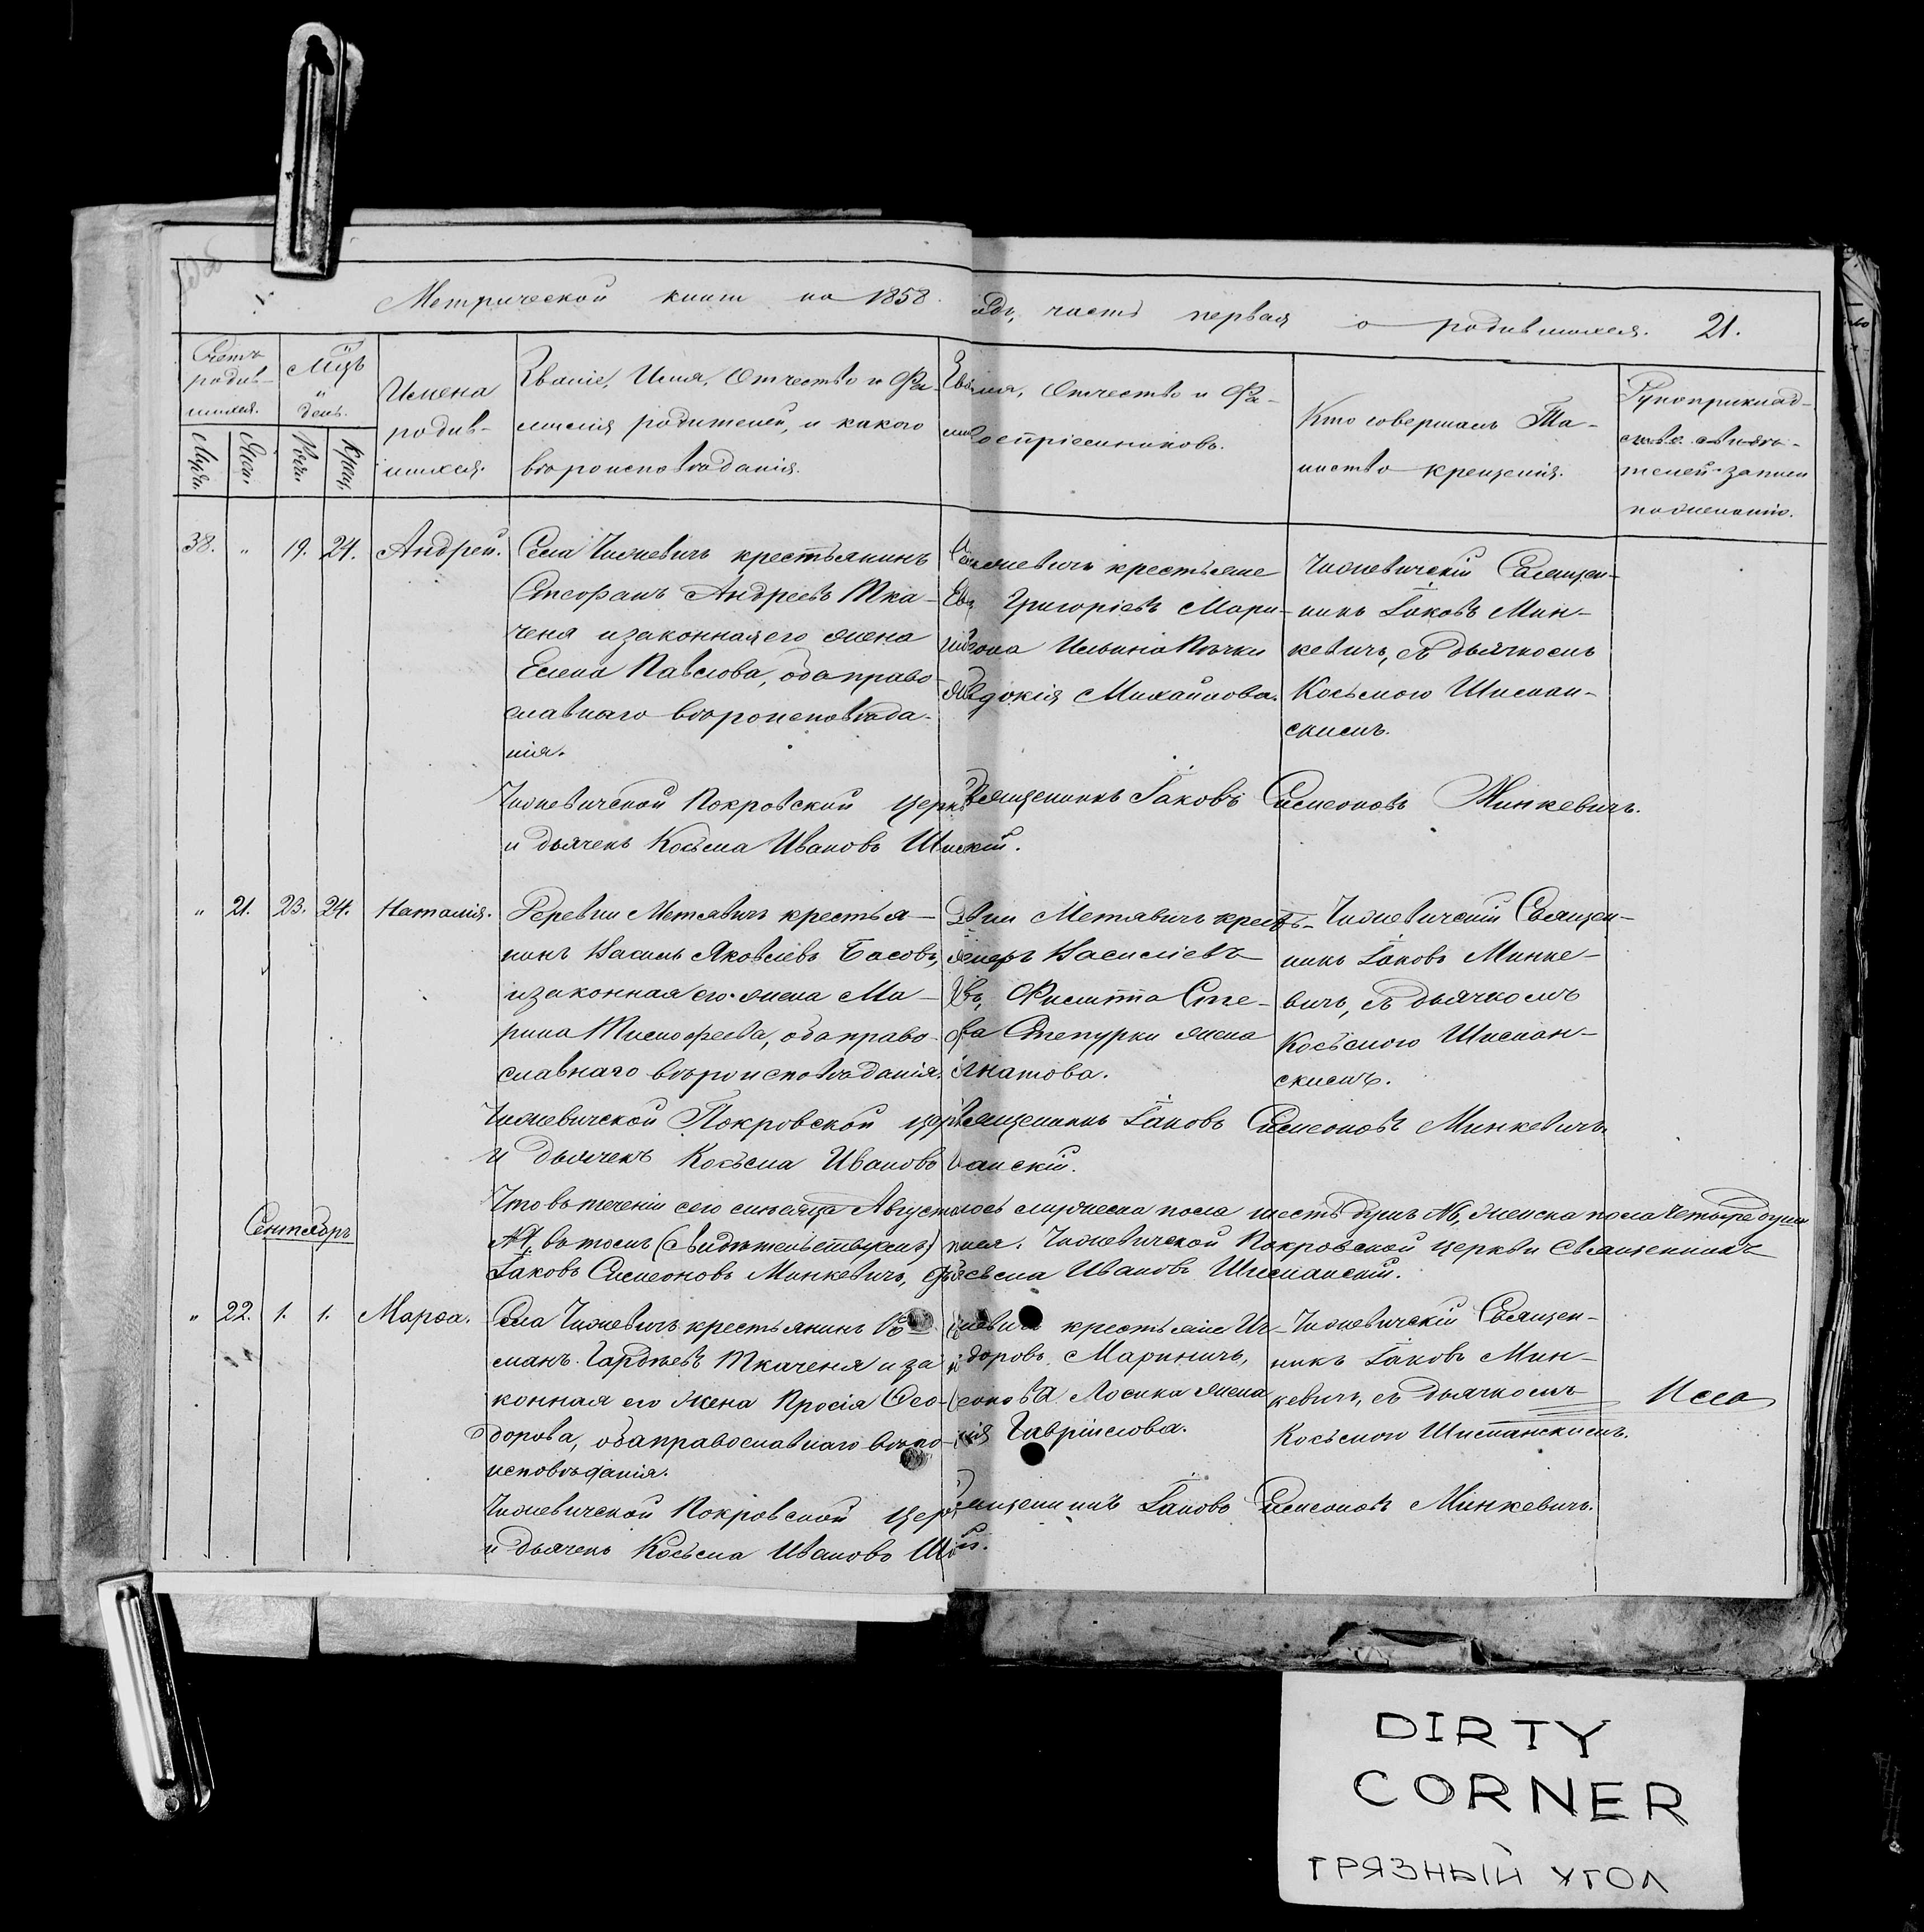 Метрической книги на 1858
часть первая о родившихся. 21.
Счетъ родив-
шихся.
Мцъ
и
день.
Имена
родив-
шихся.
Званіе, Имя, Отчество и Фа-
милія родителей, и какого
вѣроисповѣданія.
Отчество и Фа-
воспріемниковъ.
Кто совершалъ Та-
инство крещенія.
Рукоприклад-
ство свидѣ-
телей записи
по желанію.
Мужи.
Жен.
Рожд.
Крещ.
38. " 19. 24. Андрей.
Села Чижевичъ крестьянинъ
Стефанъ Андреевъ Тка-
ченя и законная его жена
Елена Павлова, оба право-
славнаго вѣроисповѣда-
нія.
крестьяне
Григоріевъ Мари-
Ильина Пѣчки
Михайлова.
Чижевичскій Священ-
никъ Іаковъ Мин-
кевичъ, съ дьячкомъ
Косьмою Шиман-
скимъ.
Чижевичской Покровской
Священникъ Іаковъ Симеоновъ Минкевичъ.
и дьячекъ Косьма Ивановъ
" 21. 23. 24. Наталія.
Деревни Метявичъ крестья-
нинъ Василь Яковлевъ Басовъ,
и законная его жена Ма-
рина Тимофеева, оба право-
славнаго вѣроисповѣданія.
Метявичъ кресть-
Василіевъ
Филиппа Сте-
Степурки жена
Игнатова.
Чижевичскій Священ-
никъ Іаковъ Минке-
вичъ, съ дьячкомъ
Косьмою Шиман-
скимъ.
Чижевичской Покровской
Священникъ Іаковъ Симеоновъ Минкевичъ.
и дьячекъ Косьма Ивановъ
Что въ теченіи сего мѣсяца
мужеска пола шесть душъ №6, женска пола четыре души
№4. въ томъ свидѣтельствуемъ
Чижевичской Покровской церкви Священникъ
Іаковъ Симеоновъ Минкевичъ,
Косьма Ивановъ Шиманскій.
Сентябрь
" 22. 1. 1. Марѳа.
Села Чижевичъ крестьянинъ Ро-
манъ Гордѣевъ Ткаченя и за-
конная его жена Просія Ѳео-
дорова, оба православнаго вѣро-
исповѣданія.
крестьяне
Мариничъ,
Лосика жена
Гавріилова.
Чижевичскій Священ-
никъ Іаковъ Мин-
кевичъ, съ дьячкомъ
Косьмою Шиманскимъ.
Чижевичской Покровской
Священникъ Іаковъ Симеоновъ Минкевичъ.
и дьячекъ Косьма Ивановъ
DIRTY
CORNER
ГРЯЗНЫЙ УГОЛ